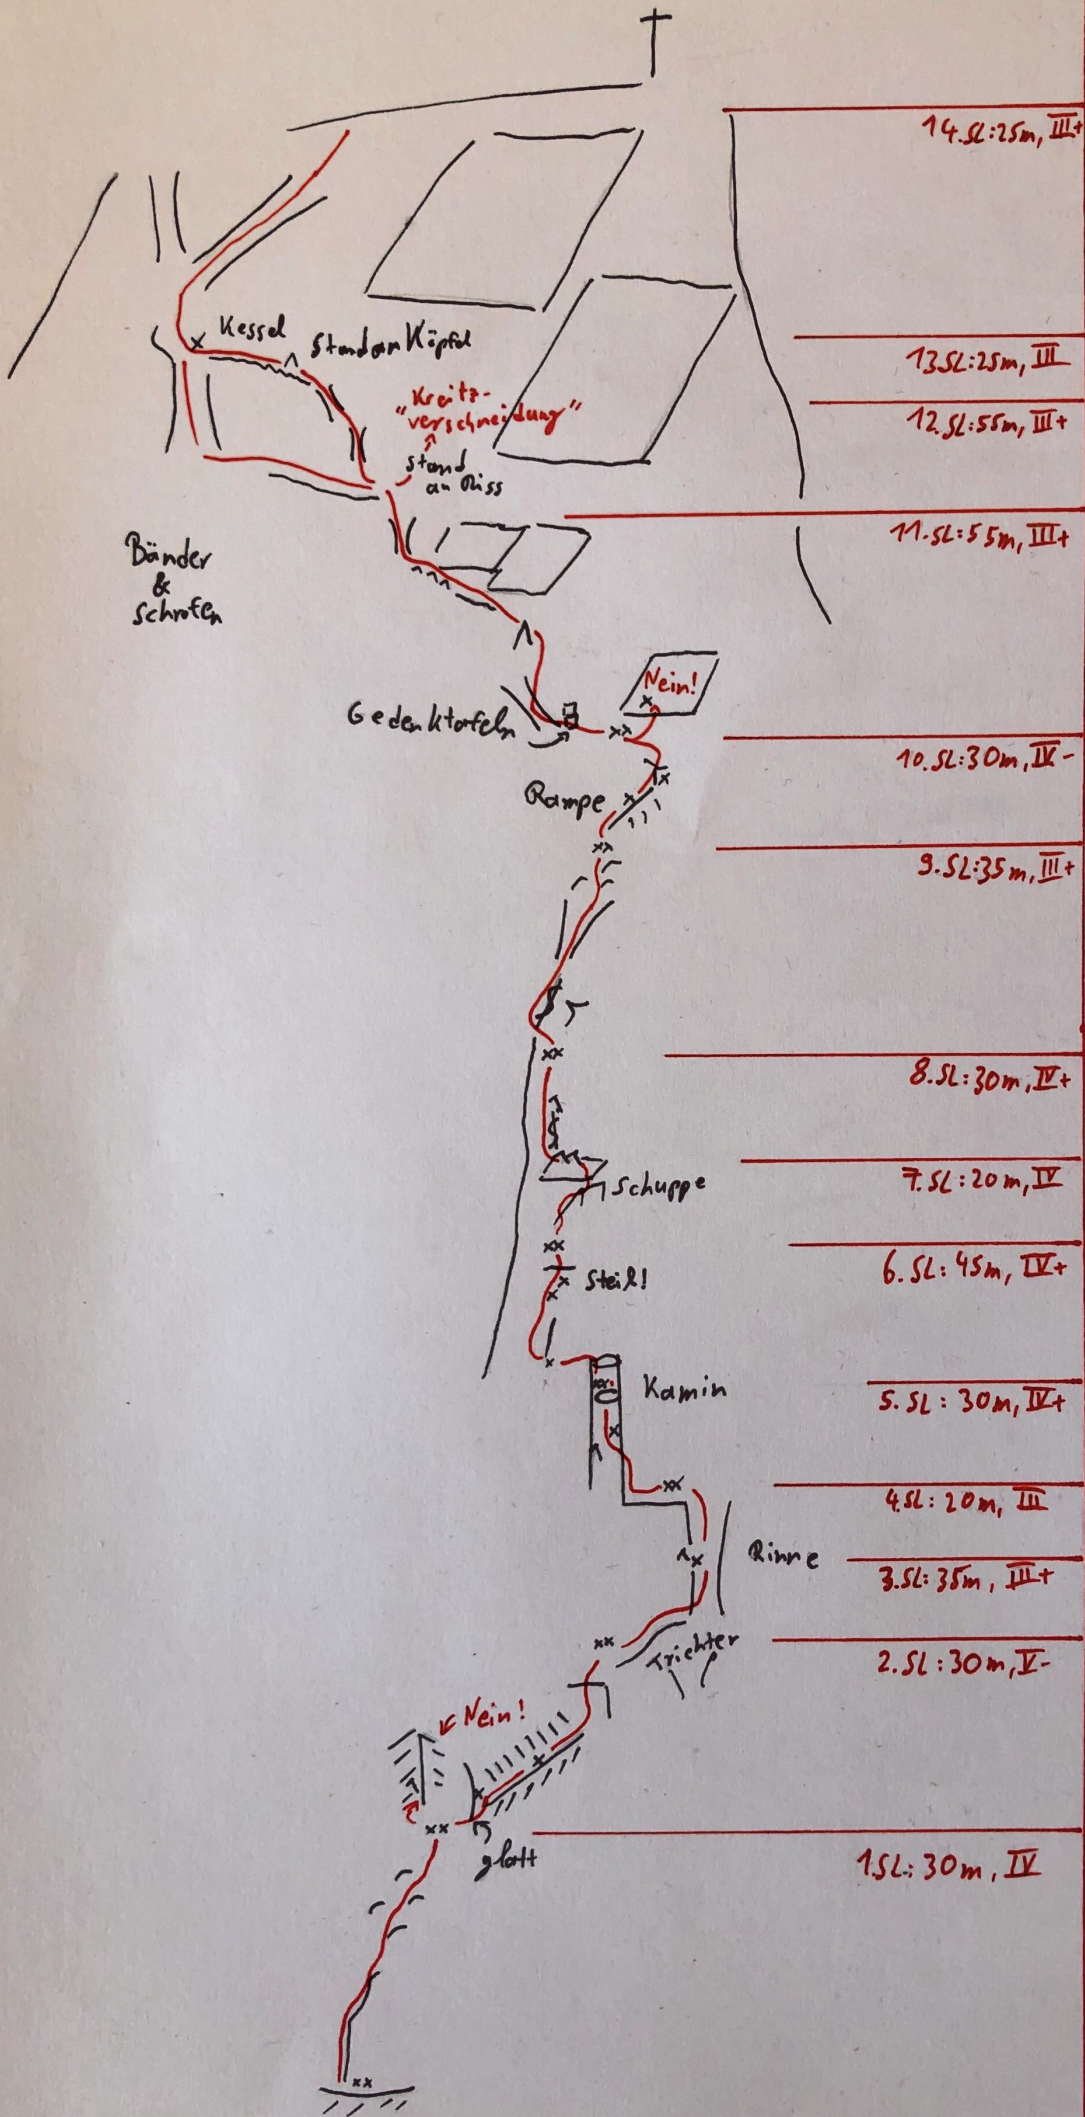 14.SL:25m, III+
Kessel
Stand am Köpfel
13SL:25m, III
"Kreitz-
verschneidung"
12.SL:55m, III+
Stand
an Riss
11.SL:55m, III+
Bänder
&
Schrofen
Nein!
Gedenktafeln
10.SL:30m, IV-
Rampe
9.SL:35m, III+
8.SL:30m, IV+
Schuppe
7.SL:20m, IV
6.SL:45m, IV+
Steil!
Kamin
5.SL:30m, IV+
4.SL:20m, III
Rinne
3.SL:35m, III+
Trichter
2.SL:30m, V-
Nein!
glatt
1.SL:30m, IV